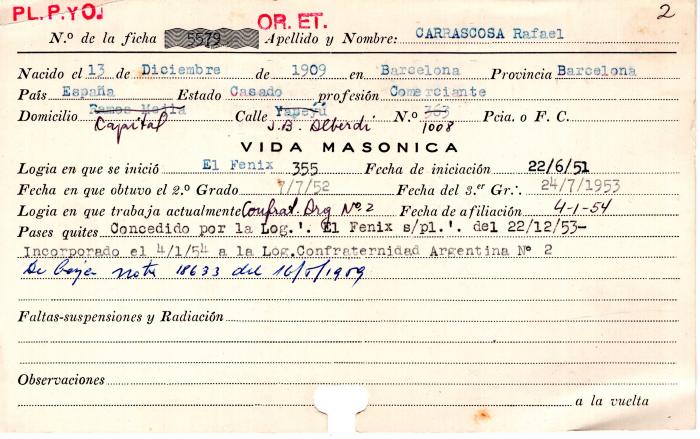 PL.P.YOJ OR. ET. 2
N.º de la ficha 5579 Apellido y Nombre: CARRASCOSA Rafael
Nacido el 13 de Diciembre de 1909 en Barcelona Provincia Barcelona
País España Estado Casado profesión Comerciante
Domicilio Ramos Mejia Calle Yapeyú N.º 363 Pcia. o F. C.
Capital J.B. Alberdi 1008
VIDA MASONICA
Logia en que se inició El Fenix 355 Fecha de iniciación 22/6/51
Fecha en que obtuvo el 2.º Grado 7/7/52 Fecha del 3.er Gr∴ 24/7/1953
Logia en que trabaja actualmente Confrat. Arg Nº 2 Fecha de afiliación 4-1-54
Pases quites Concedido por la Log.'. El Fenix s/pl.'. del 22/12/53-
Incorporado el 4/1/54 a la Log.Confraternidad Argentina Nº 2
De baja nota 18633 del
Faltas-suspensiones y Radiación
Observaciones
a la vuelta